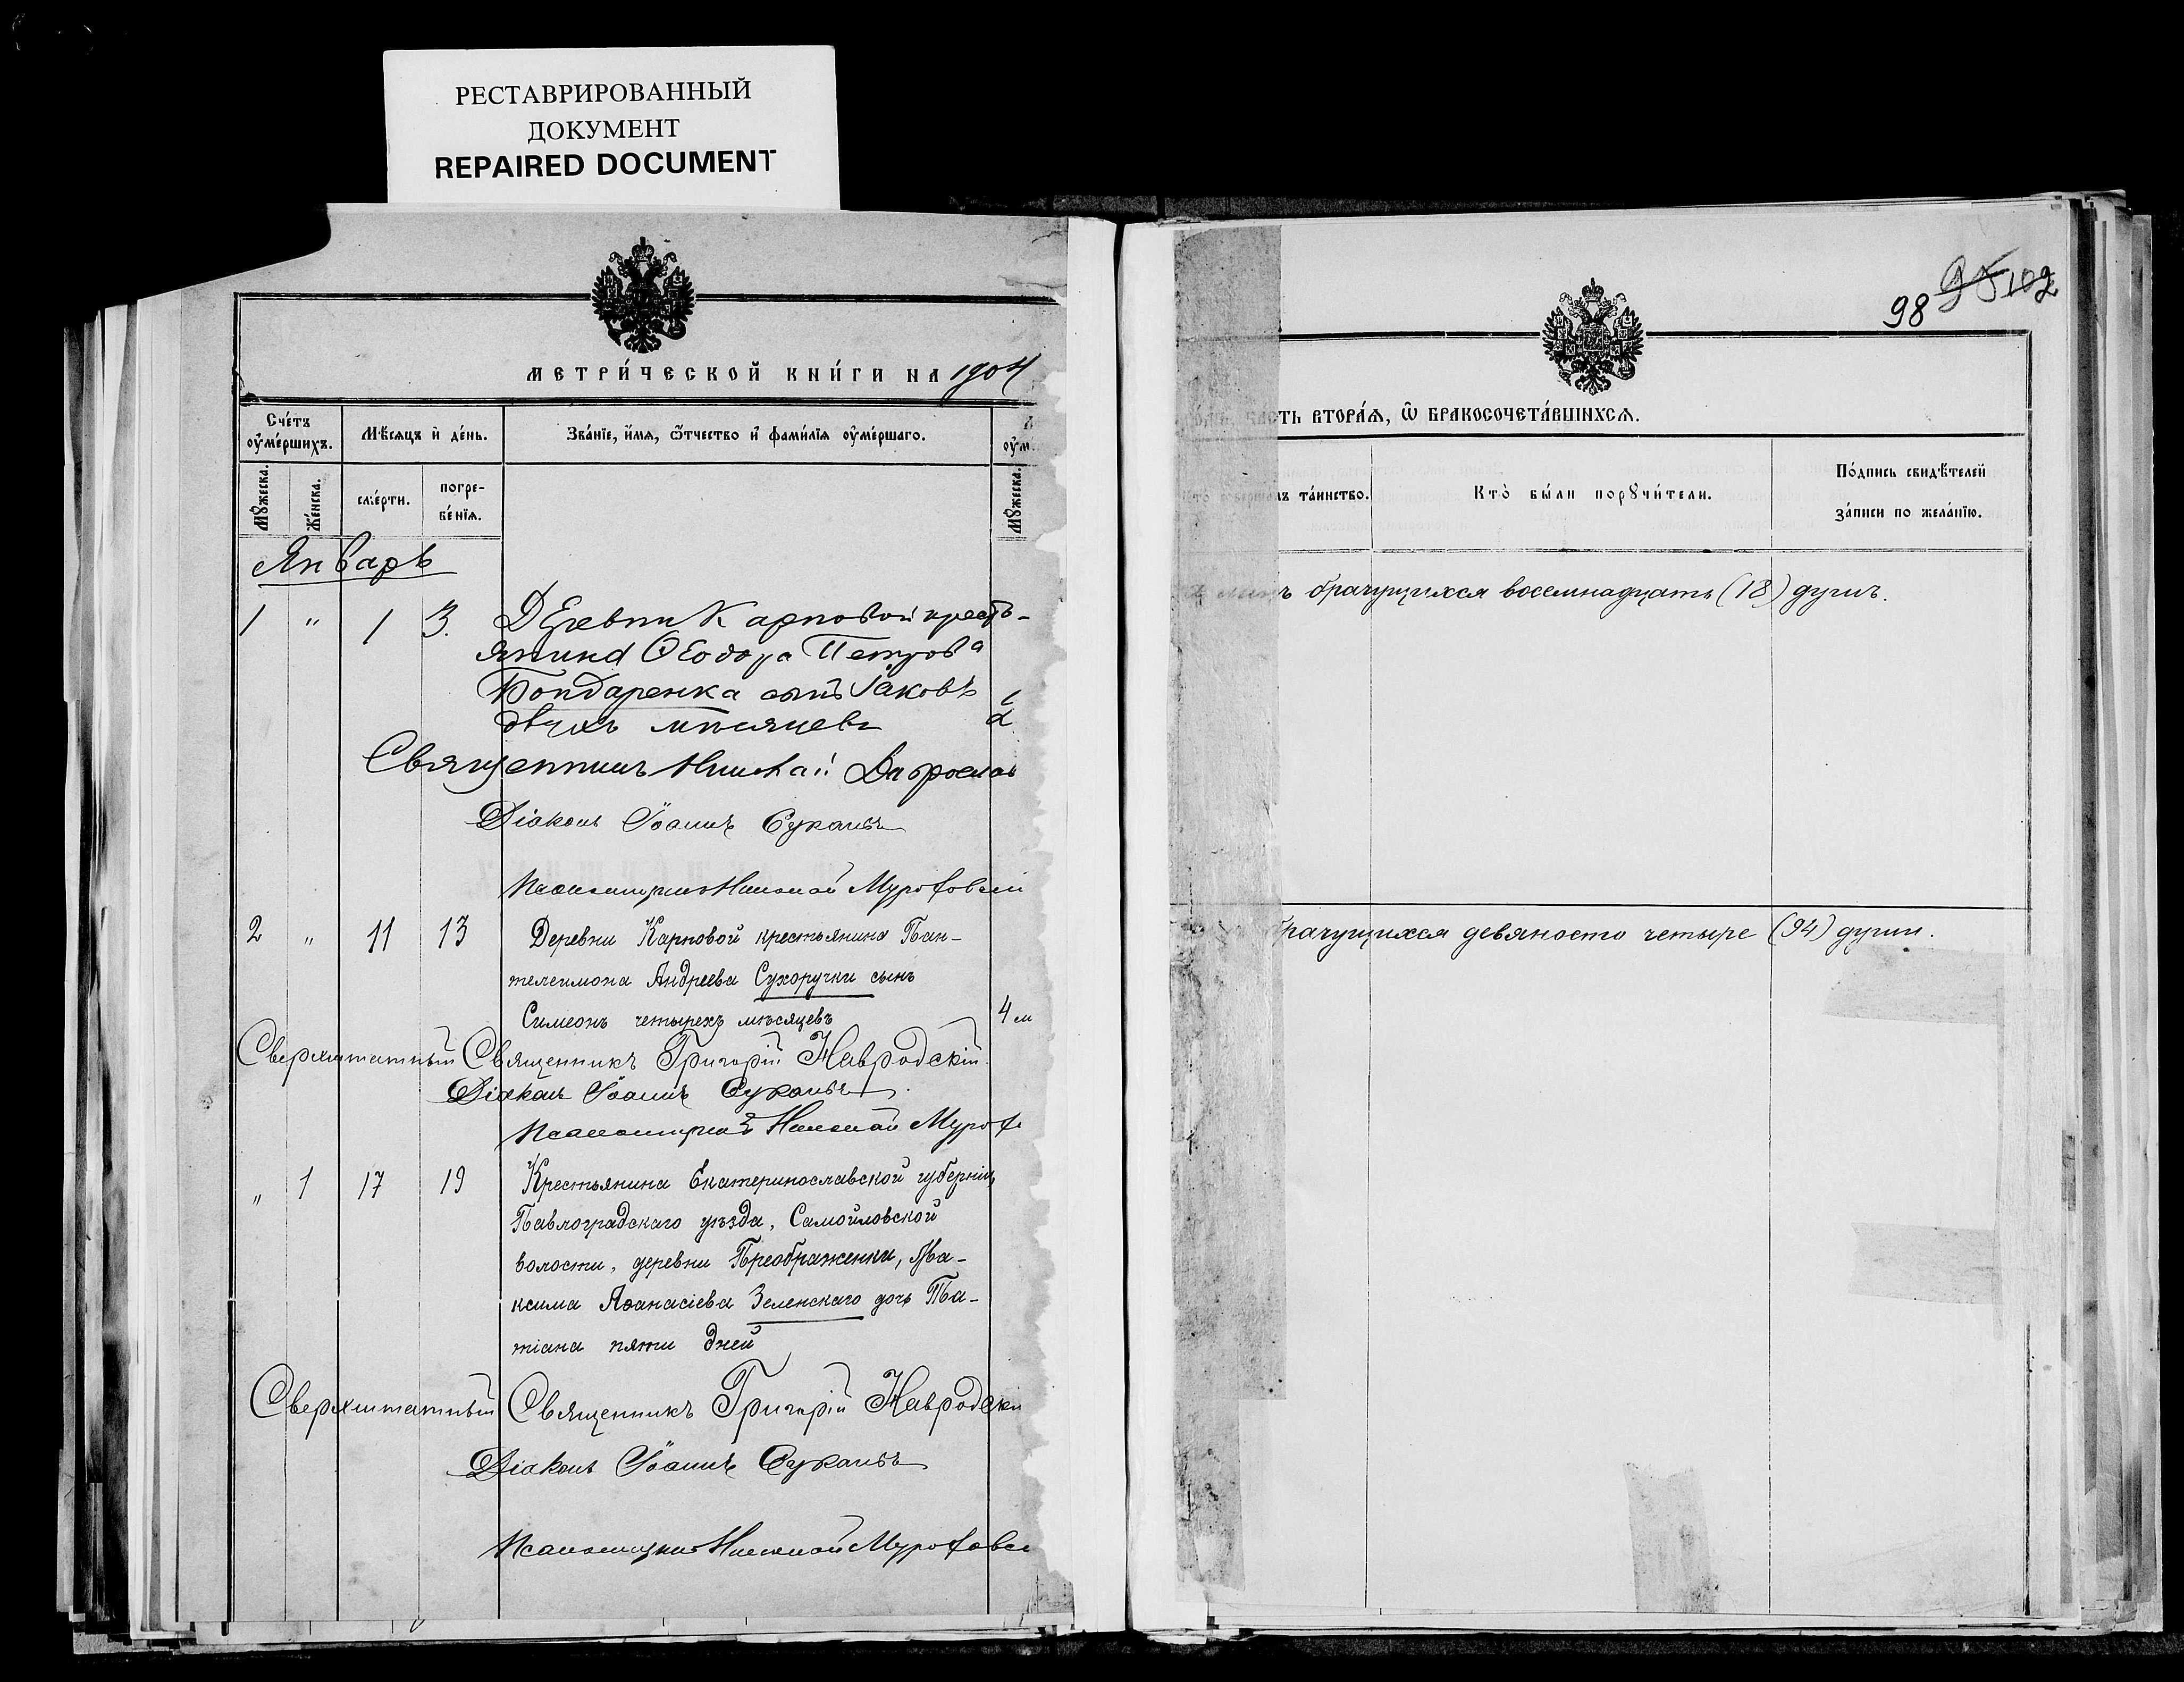 РЕСТАВРИРОВАННЫЙ
ДОКУМЕНТ
REPAIRED DOCUMENT
МЕТРИ́ЧЕСКОЙ КНИ́ГИ НА 1904
Сче́тъ оу҆ме́ршихъ.
Мѣ́сяцъ и҆ де́нь.
Зва́нїе, и҆́мя, ѻ҆́тчество и҆ фами́лїя оу҆ме́ршаго.
оу҆м
Мꙋ́жеска.
Же́нска.
сме́рти.
погре-
бе́нїя.
Мꙋ́жеска.
Январь
1 " 1 3. Деревни Карповой кресть-
янина Ѳеодора Петрова
Бондаренка сынъ Іаковъ
двухъ мѣсяцевъ 2
Священникъ Николай
Діаконъ Іоаннъ
Псаломщикъ Николай
2 " 11 13 Деревни Карповой крестьянина Пан-
телеимона Андреева Сухоручки сынъ
Симеонъ четырехъ мѣсяцевъ 4 м
Сверхштатный Священникъ Григорій Навродскій.
Діаконъ Іоаннъ
Псаломщикъ Николай
" 1 17 19 Крестьянина Екатеринославской губерніи,
Павлоградскаго уѣзда, Самойловской
волости, деревни Преображенки, Ма-
ксима Аѳанасіева Зеленскаго дочь Та-
тіана пяти дней
Сверхштатный Священникъ Григорій Навродскі
Діаконъ Іоаннъ
Псаломщикъ Николай
98 95 102
ЧА́СТЬ ВТОРА́Ѧ, Ѽ БРАКОСОЧЕТА́ВШИХСѦ.
Кто̀ соверша́лъ та́инство.
Кто̀ бы́ли порꙋчи́тели.
По́дпись свидѣ́телей
за́писи по жела́нїю.
брачущихся восемнадцать (18) душъ.
брачущихся девяносто четыре (94) души.